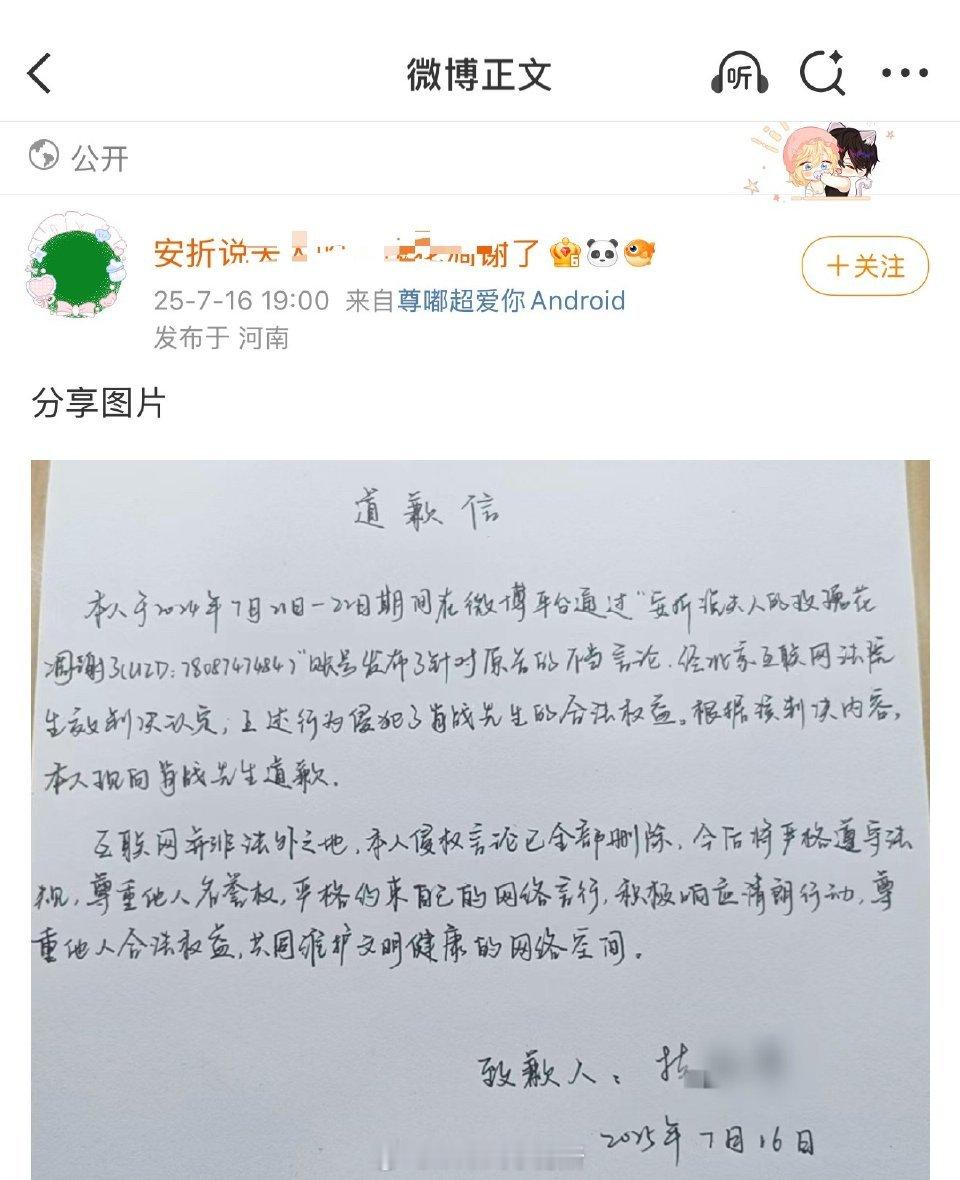 微博正文
听
公开
安折说夫人 凋谢了
+关注
25-7-16 19:00 来自尊嘟超爱你Android
发布于 河南
分享图片
道歉信
本人于2024年7月21日-22日期间在微博平台通过“安折说夫人的玫瑰花
凋谢了(UID:7808747484)”账号发布了针对原告的不当言论.经北京互联网法院
生效判决认定,上述行为侵犯了肖战先生的合法权益。根据该判决内容,
本人现向肖战先生道歉.
互联网并非法外之地,本人侵权言论已全部删除,今后将严格遵守法
规,尊重他人名誉权,严格约束自己的网络言行,积极响应清朗行动,尊
重他人合法权益,共同维护文明健康的网络空间。
致歉人:
2025年7月16日